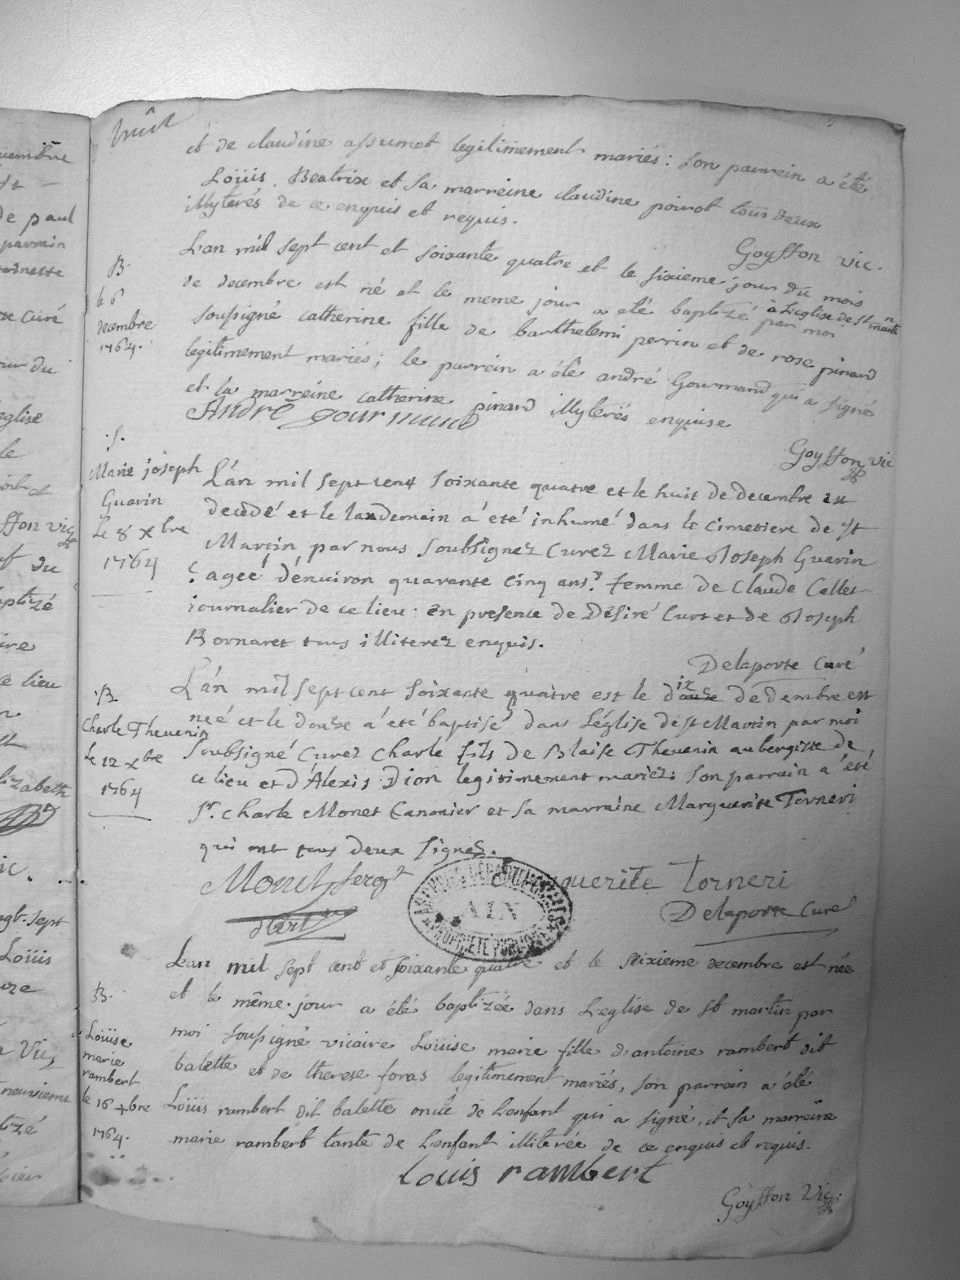 huit
et de claudine assumet legitimement mariés : son parrein a été
Loüis Beatrix et sa marreine claudine poirot tous deux
illyterés de ce enquis et requis.
Goyffon vic.
B.
le 6
decembre
1764.
L'an mil sept cent et soixante quatre et le sixieme jour du mois
de decembre est né et le meme jour a été baptizé à L'eglise de St martin par moi
soussigné catherine fille de barthelemi perrin et de rose pinard
legitimement mariés ; le parrein a été andré Gourmand qui a signé
et la marreine catherine pinard illyterés enquise
André gourmand
Goyffon vic
.S.
Marie joseph
Guarin
Le 8 Xbre
1764
L'an mil sept cent soixante quatre et le huit de decembre est
decedé et le landemain a été inhumé dans le cimetiere de st
Martin par nous soubsignez Curez Marie Joseph Guerin
agee d'environ quarante cinq ans femme de Claude Collet
journalier de ce lieu. en presence de Désiré Curt et de Joseph
Bornaret tous illiterez enquis.
Delaporte Curé
B
Charle Thevenin
Le 12 Xbre
1764
L'an mil sept cent soixante quatre est le douze dix de dembre est
neé et le douze a été baptisé dans L'église de st Martin par moi
soubsigné Curez Charle fils de Blaise Thevenin aubergiste de
ce lieu et d'Alexis Dion legitimement mariez. son parrain a été
sr. Charle Monet Canonier et sa marraine Marguerite Torneri
qui ont tous deux signez.
Monet serg't
Marguerite Torneri
Delaporte Curé
ARCHIVES DEPARTEMENTALES
AIN
PROPRIETE PUBLIQUE
B.
Loüise
marie
rambert
le 16 Xbre
1764.
L'an mil sept cent et soixante quatre et le seixieme decembre est née
et le même jour a été baptizée dans L'eglise de st martin par
moi soussigné vicaire Loüise marie fille d'antoine rambert dit
balette et de therese foras legitimement mariés, son parrain a été
Loüis rambert dit balette oncle de L'enfant qui a signé, et sa marreine
marie rambert tante de L'enfant illiterée de ce enquis et requis.
Louis rambert
Goyffon Vic.